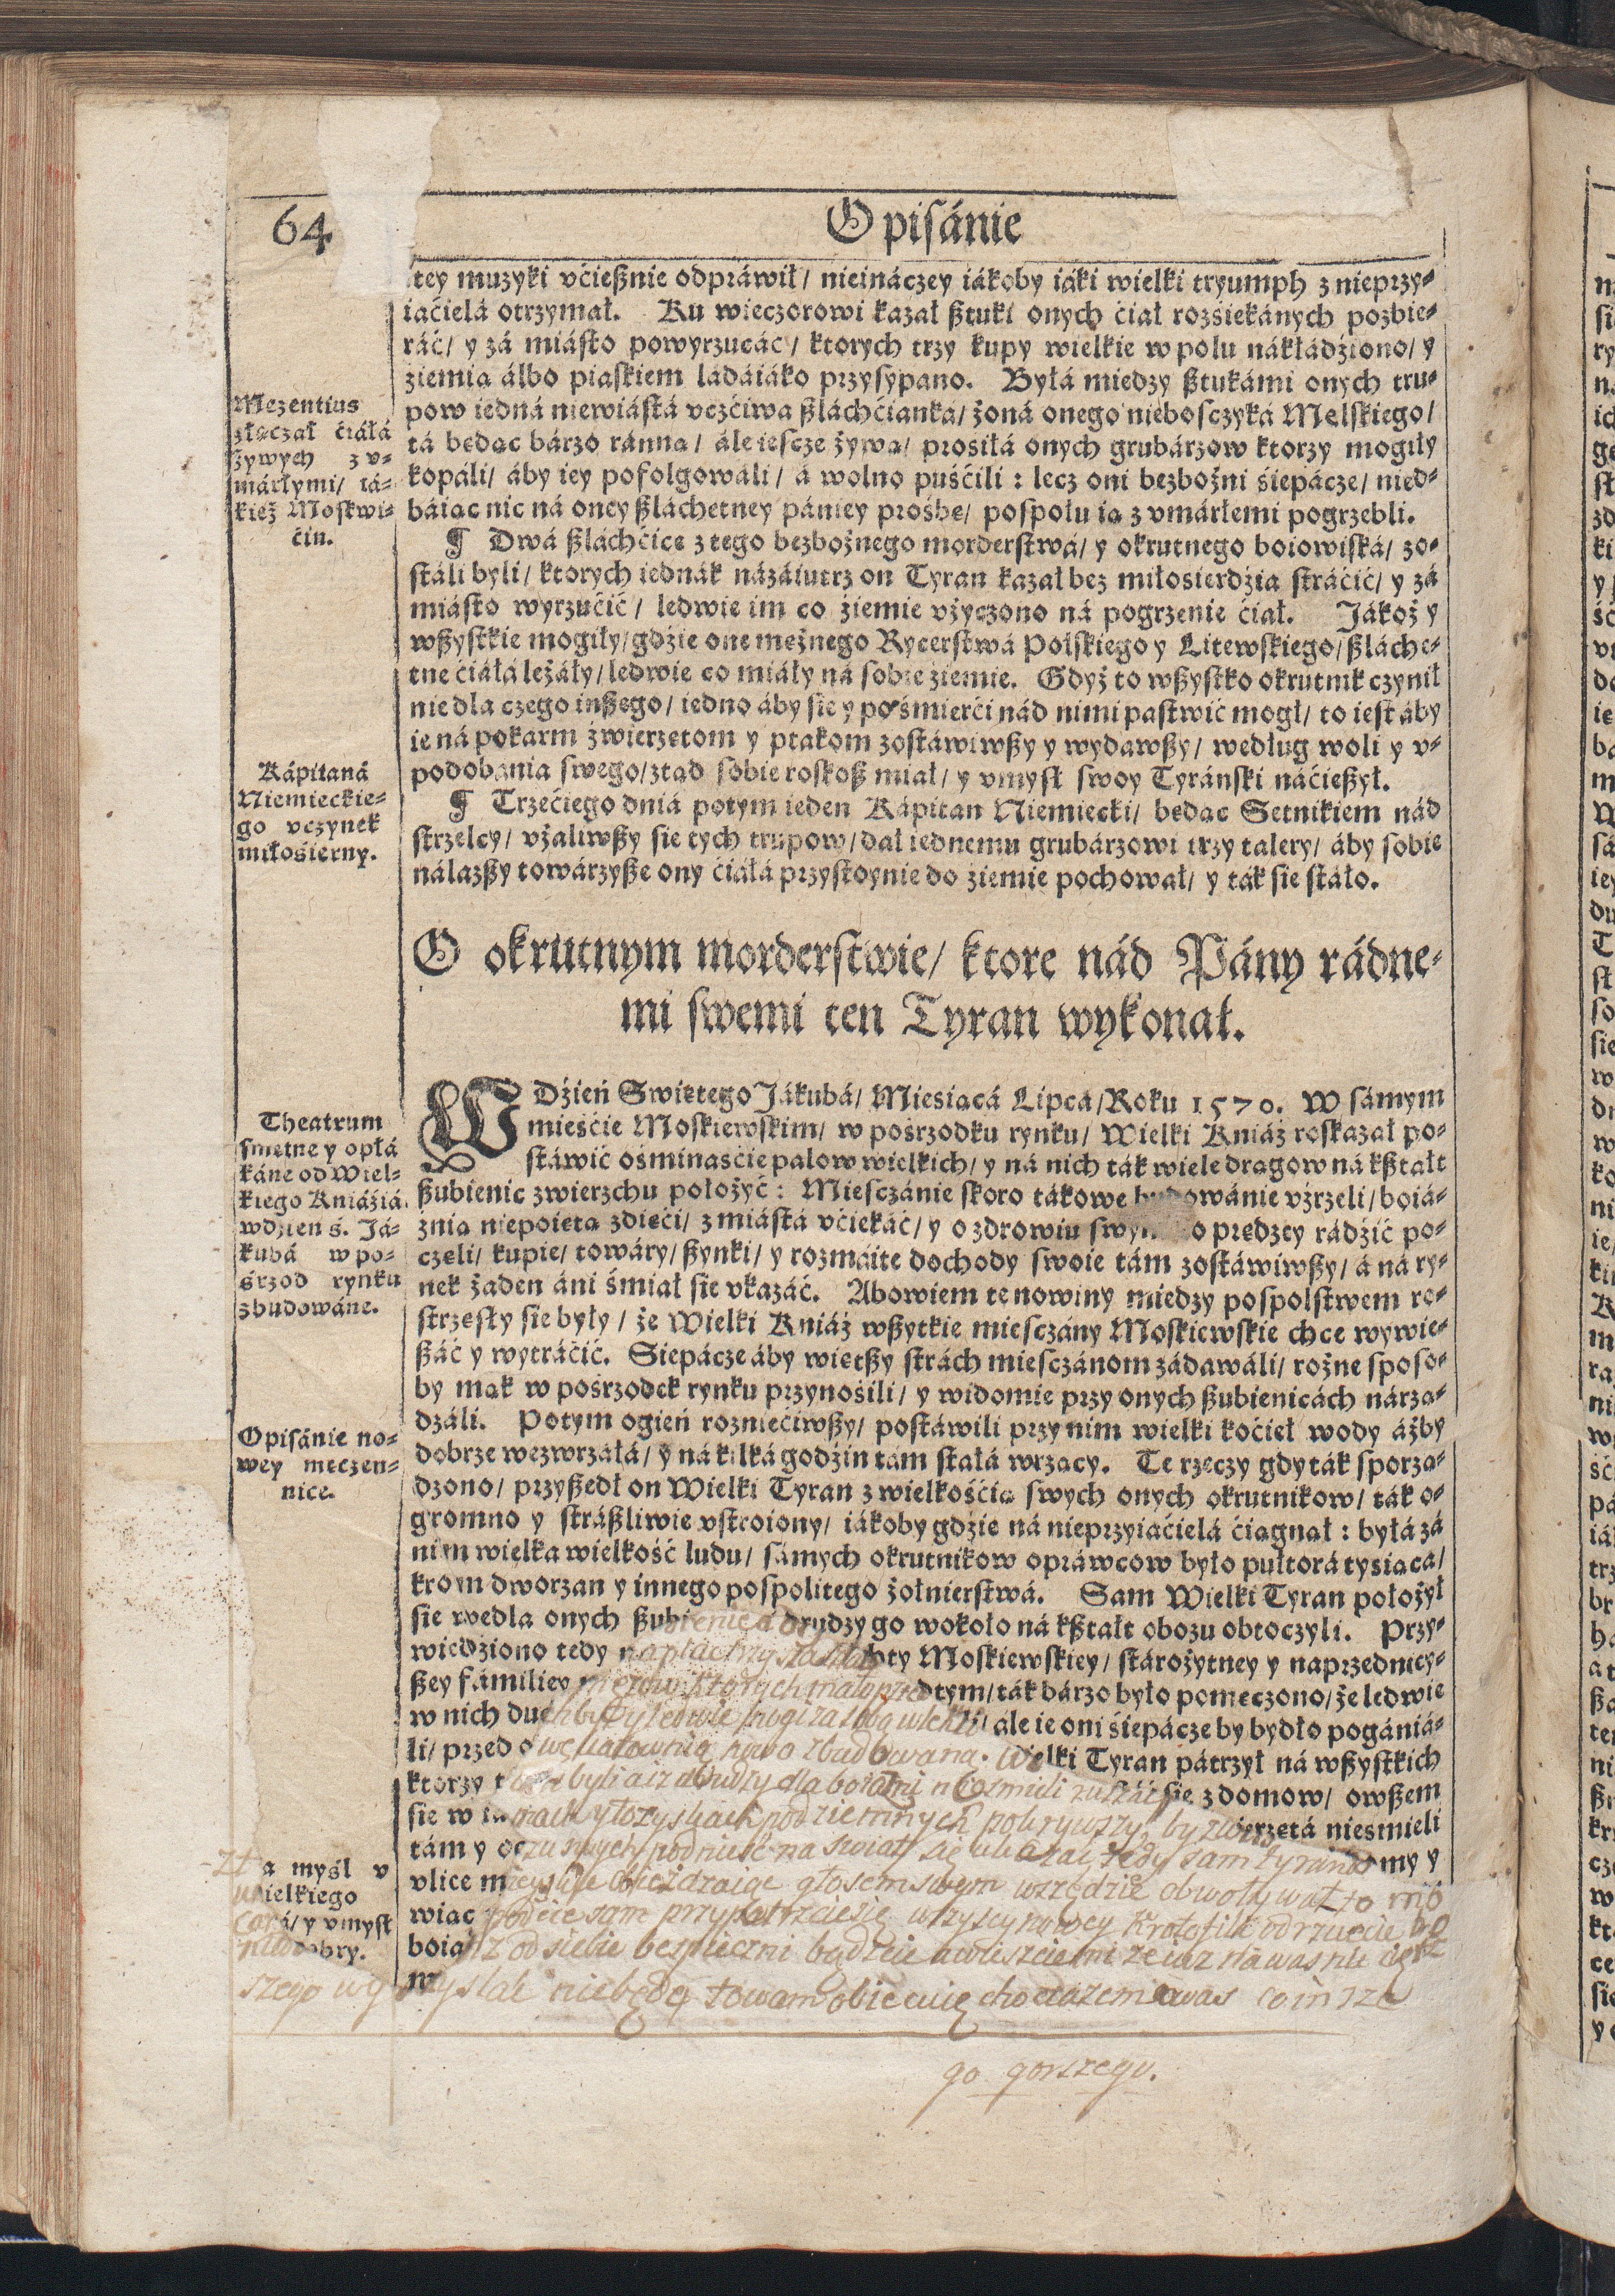 64
Opisánie
tey muzyki vćießnie odpráwił/ nieináczey iákoby iáki wielki tryumph z nieprzy-
iaćielá otrzymał. Ku wieczorowi kazał ßtuki onych ćiał rozśiekánych pozbie-
ráć/ y zá miásto powyrzucáć/ ktorych trzy kupy wielkie w polu nákłádźiono/ y
źiemią álbo piaskiem ládáiáko przysypano. Byłá miedzy ßtukámi onych tru-
pow iedná niewiástá vczćiwa ßláchćianká/ żoná onego niebosczyká Melskiego/
tá bedąc bárzo ránna/ ále iescze żywa/ prosiłá onych grubárzow ktorzy mogiły
kopáli/ áby iey pofolgowáli/ á wolno puśćili: lecz oni bezbożni śiepácze/ nied-
báiąc nic ná oney ßláchetney pániey prośbę/ pospołu ią z vmárłemi pogrzebli.
Mezentius
złączał ćiáłá
żywych z v-
márłymi/ tá-
kież Moskwi-
ćin.
¶ Dwá ßláchćice z tego bezbożnego morderstwá/ y okrutnego boiowiská/ zo-
stáli byli/ ktorych iednák názáiutrz on Tyran kazał bez miłosierdźia stráćić/ y zá
miásto wyrzućić/ ledwie im co źiemie vżyczono ná pogrzenie ćiał. Jákoż y
wßystkie mogiły/ gdźie one mężnego Rycerstwá Polskiego y Litewskiego/ ßláche-
tne ćiáłá leżáły/ ledwie co miáły ná sobie źiemie. Gdyż to wßystko okrutnik czynił
nie dla czego inßego/ iedno áby sie y po śmierći nád nimi pastwić mogł/ to iest áby
ie ná pokarm źwierzętom y ptakom zostáwiwßy y wydawßy/ według woli y v-
podobánia swego/ ztąd sobie roskoß miał/ y vmysł swoy Tyránski náćießył.
Kápitaná
Niemieckie-
go vczynek
miłośierny.
¶ Trzećiego dniá potym ieden Kápitan Niemiecki/ bedąc Setnikiem nád
strzelcy/ vżaliwßy sie tych trupow/ dał iednemu grubárzowi trzy talery/ áby sobie
nálazßy towárzyße ony ćiáłá przystoynie do źiemie pochował/ y ták sie stáło.
O okrutnym morderstwie/ ktore nád Pány rádne-
mi swemi ten Tyran wykonał.
W Dźień Swiętego Jákubá/ Miesiącá Lipcá/ Roku 1570. W sámym
mieśćie Moskiewskim/ w pośrzodku rynku/ Wielki Kniáź roskazał po-
stáwić ośminaśćie palow wielkich/ y ná nich ták wiele drągow ná kßtałt
ßubienic zwierzchu położyć: Miesczánie skoro tákowe budowánie vźrzeli/ boiá-
źnią niepoiętą zdięći/ z miástá vćiekáć/ y o zdrowiu swym co prędzey rádźić po-
częli/ kupie/ towáry/ ßynki/ y rozmáite dochody swoie tám zostáwiwßy/ á ná ry-
nek żaden áni śmiał sie vkazáć. Abowiem te nowiny miedzy pospolstwem ro-
strzesły sie były/ że Wielki Kniáź wßytkie miesczány Moskiewskie chce wywie-
ßáć y wytráćić. Siepácze áby więtßy strách miesczánom zádawáli/ rożne sposo-
by mąk w pośrzodek rynku przynośili/ y widomie przy onych ßubienicách nárzą-
dzáli. Potym ogień rozniećiwßy/ postáwili przy nim wielki koćieł wody áżby
dobrze wezwrzáłá/ y ná kilká godźin tám stałá wrzący. Te rzeczy gdy ták sporzą-
dzono/ przyßedł on Wielki Tyran z wielkośćią swych onych okrutnikow/ ták o-
gromno y stráßliwie vstroiony/ iákoby gdźie ná nieprzyiaćielá ćiągnął: byłá zá
nim wielka wielkość ludu/ sámych okrutnikow opráwcow było pułtorá tysiącá/
krom dworzan y innego pospolitego żołnierstwá. Sam Wielki Tyran położył
sie wedla onych ßubienic á drudzy go wokoło ná kßtałt obozu obtoczyli. Przy-
wiedziono tedy na plac trzysta szlachty Moskiewskiey/ stárożytney y naprzednieý-
ßey fámiliey mężow, ktorych mało przedtym/ ták bárzo było pomęczono/ że ledwie
w nich duch był y ledwie nogi za sobą wlekli/ ale ie oni śiepácze by bydło pogániá-
li/ przed owę katownią nowo zbudowana. Wielki Tyran pátrzył ná wßystkich
ktorzy tam byli a iż drudzy dla boiaźni nie śmieli ruszáć sie z domow/ owßem
sie w iamach y łożyskach podziemnych pokrywszy, by zwierzętá niesmieli
tám y oczu swych podnieść na swiat się ukazać, tedy sam tyran domy y
vlice mieyskie obieżdzaiąc głosem swym wszędzie obwoływał to mo
wiąc podcie sam przypatrzciesię wszyscy nowey Krotofili odrzuccie bo
boiaźń od siebie bezpieczni bądzcie a wieszciemi że iuż na was nic gor
szego wymyslać niebędę to wam obiecuię chociażem o was co insze
go gorszego.
Theatrum
smętne y opłá
káne od Wiel-
kiego Kniáźiá
w dźień ś. Já-
kubá w po-
śrzod rynku
zbudowáne.
Opisánie no-
wey męczen-
nice.
Zła myśl v
wielkiego
Cará/ y vmysł
niedobry.